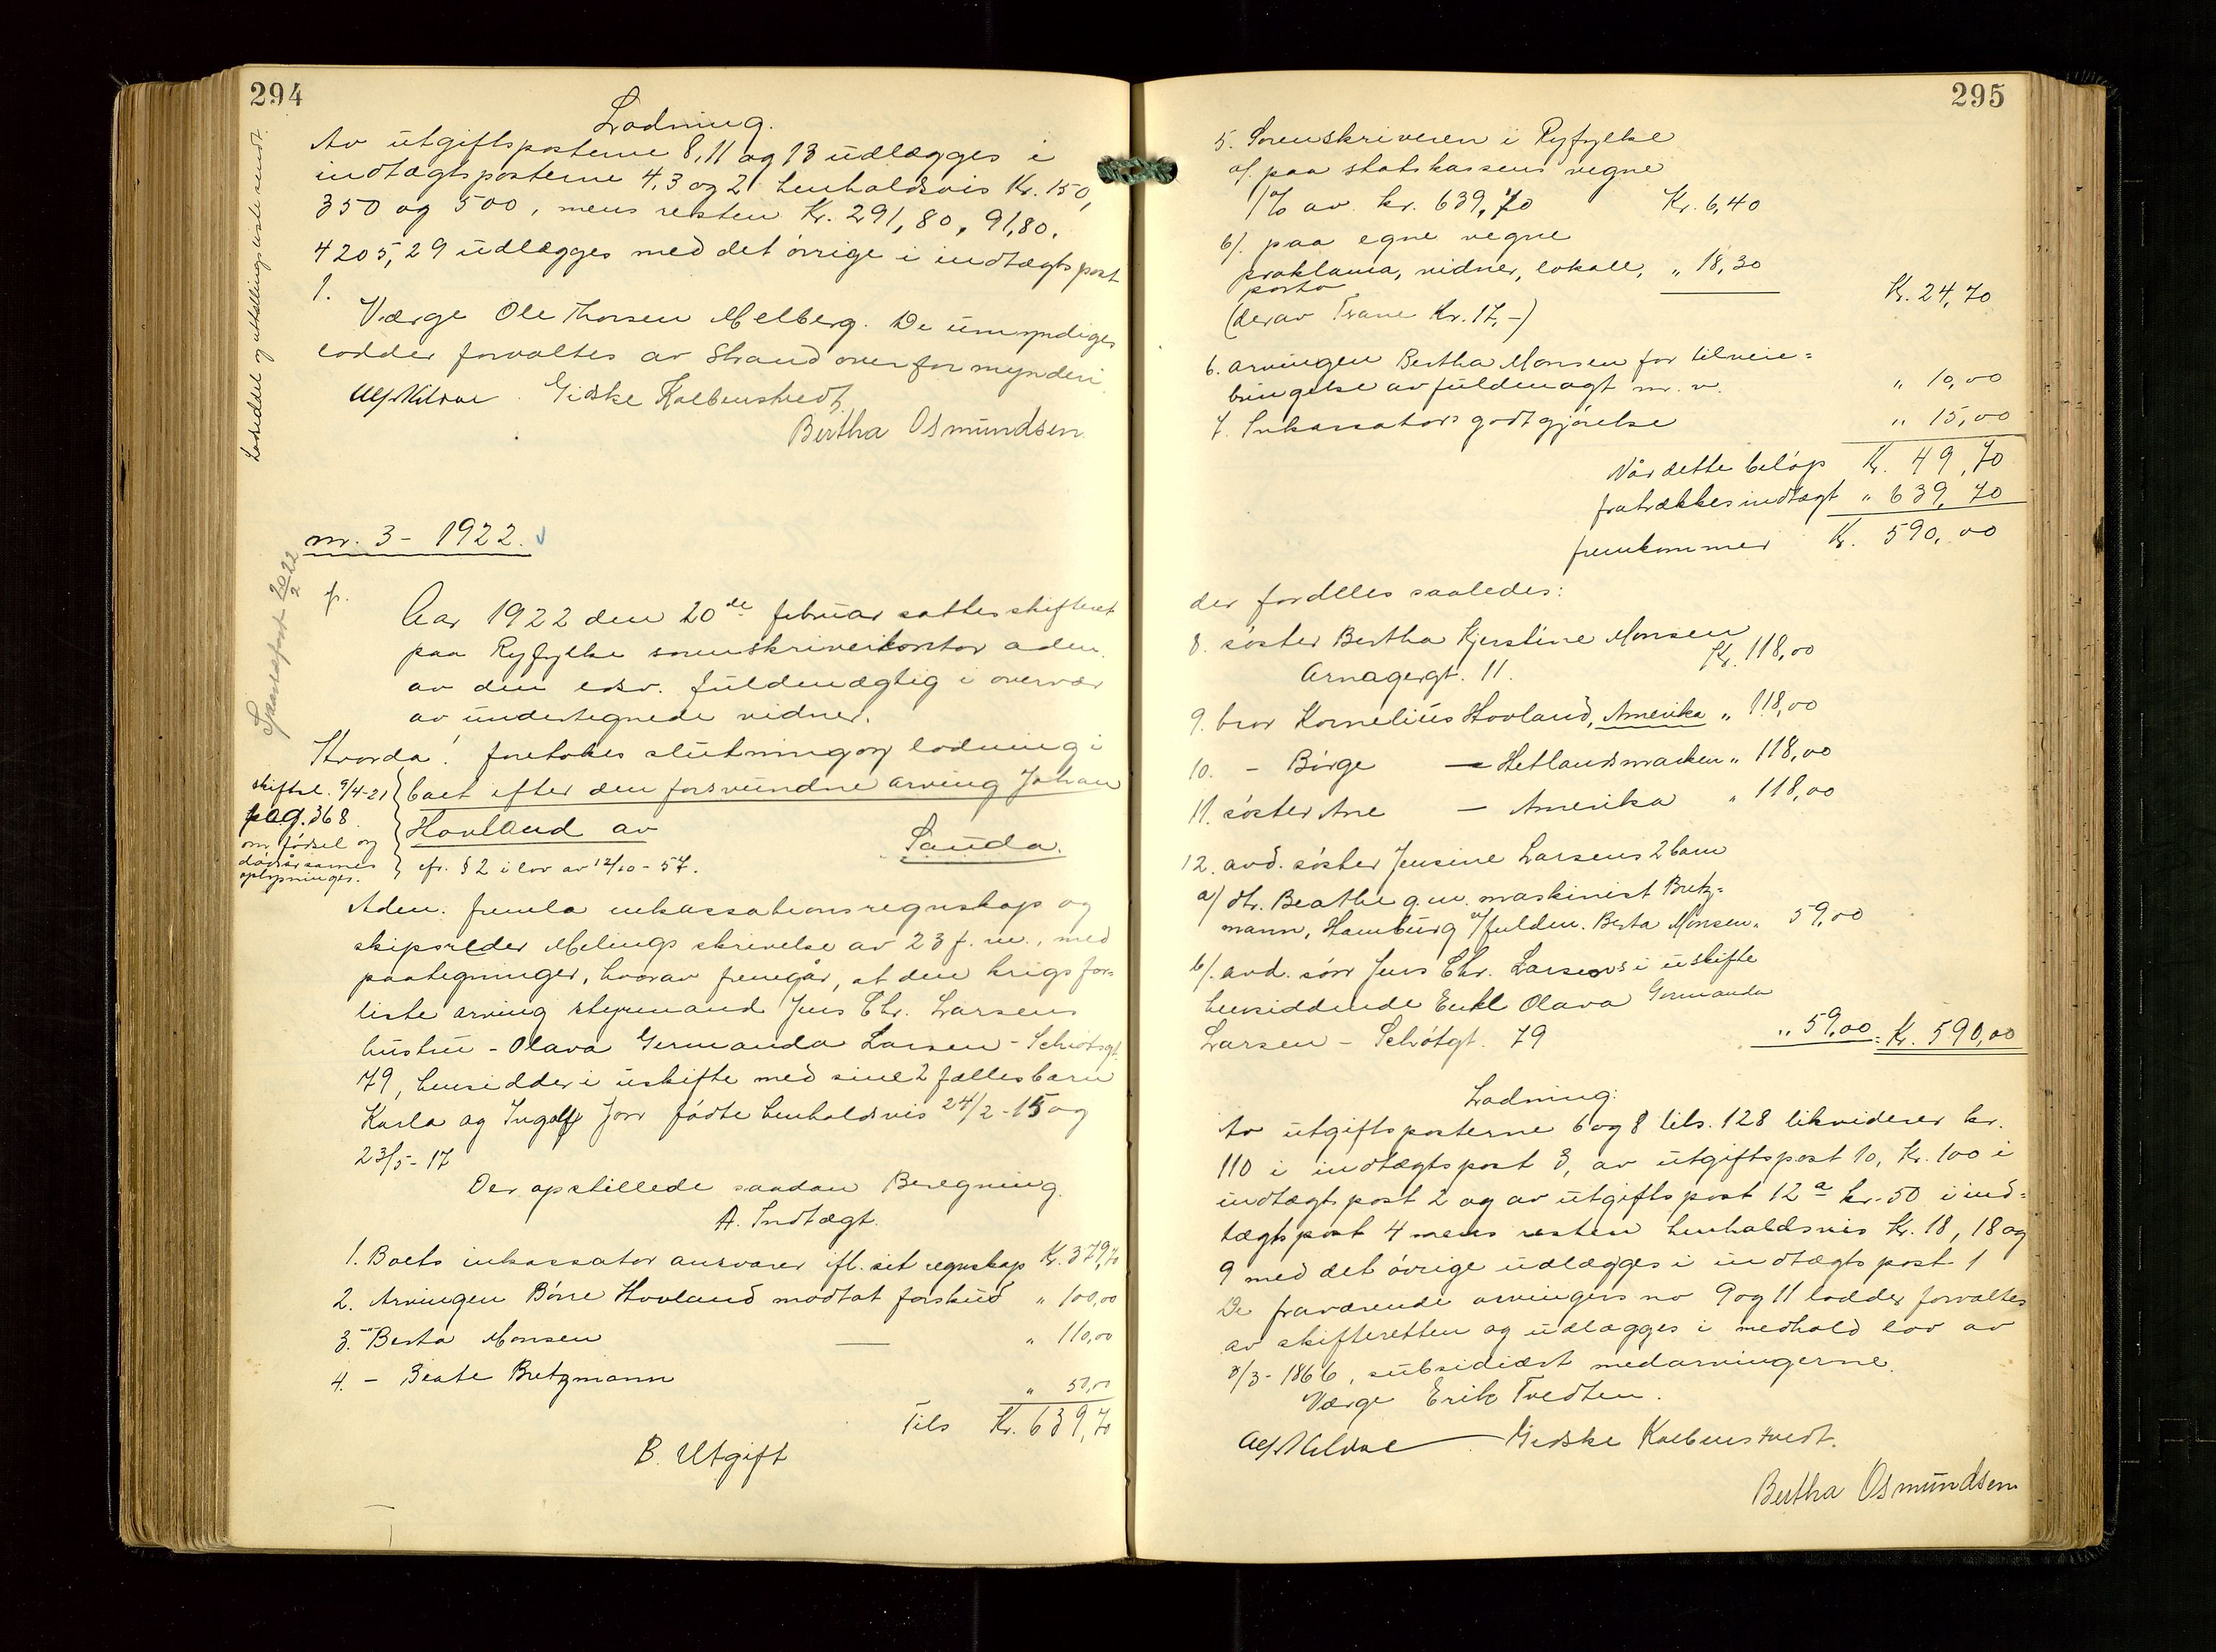 294
Lodning.
Av utgiftsposterne 8, 11 og 13 udlægges i
indtægtsposterne 4, 3 og 2 henholdsvis Kr. 150,
350 og 500, mens resten Kr. 291,80, 91,80,
4205,29 udlægges med det øvrige i indtægtspost
1.
Værge Ole Thorsen Melberg. De umyndiges
lodder forvaltes av Strand overformynderi
Alf Kildal Gidske Kolbenstvedt,
Bertha Osmundsen.
Lodseddel og utstillingsliste sendt.
nr. 3 - 1922.
20/2 22
fr.
Aar 1922 den 20de februar sattes skifteret
paa Ryfylke sorenskriverkontor adm.
av den edsv. fuldmægtig i overvær
av undertegnede vidner.
Hvorda! foretokes slutning og lodning i
boet efter den forsvundne arving Johan
Hovland av
Sauda.
cfr. § 2 i lov av 12/10 - 57.
skiftel. 9/4-21
pag. 368
om fødsel og
dødsår samt
oplysninger.
Adm. fremla inkassationsregnskap og
skipsreder Melings skrivelse av 23 f. m., med
paategninger, hvorav fremgår, at den krigsfor-
liste arving styrmand Jens Chr. Larsens
hustru - Olava Germanda Larsen - Schiøtsgt.
79, hensidder i uskifte med sine 2 fællesbarn
Karla og Ingolf Jon fødte henholdsvis 24/2 - 15 og
23/5 - 17
Der opstillede saadan Beregning.
A. Indtægt.
1. Boets inkassator ansvarer ifl. sit regnskap Kr. 379,70
2. Arvingen Børre Hovland modtat forskud " 100,00
3. -"- Berta Monsen — " 110,00
4. - Beate Bretzmann " 50,00
Tils Kr. 639,70
B. Utgift
295
5. Sorenskriveren i Ryfylke
a/. paa statskassens vegne
1% av kr. 639,70 Kr. 6,40
b/. paa egne vegne
proklama, vidner, lokale, " 18,30
porto
(derav Trane Kr. 17,-)
Kr. 24,70
6. arvingen Bertha Monsen for tilveie=
bringelse av fuldmagt m. v. " 10,00
7. Inkassators godtgjørelse " 15,00
Når dette beløp Kr. 49,70
fratrækkes indtægt " 639,70
fremkommer Kr. 590,00
der fordeles saaledes:
8. søster Bertha Kjerstine Monsen
Arnagergt. 11. Kr. 118,00
9. bror Kornelius Hovland, Amerika " 118,00
10. - Børge — Hetlandsmarken " 118,00
11. søster Ane — Amerika " 118,00
12. avd. søster Jensine Larsens 2 barn
a/ dtr. Beathe g.m. maskinist Bretz=
mann, Hamburg v/fuldm. Berta Monsen " 59,00
b/. avd. sønn Jens Chr. Larsens i uskifte
hensiddende Enke Olava Germanda
Larsen - Schiøtgt. 79 " 59,00 = Kr. 590,00
Lodning:
Av utgiftsposterne 6 og 8 tils. 128 likviderer kr.
110 i indtægtspost 3, av utgiftspost 10, Kr. 100 i
indtægtspost 2 og av utgiftspost 12 a kr. 50 i ind=
tægtspost 4 mens resten henholdsvis Kr. 18, 18 og
9 med det øvrige udlægges i indtægtspost 1
De fraværende arvingers no 9 og 11 lodder forvaltes
av skifteretten og udlægges i medhold lov av
3/3 - 1866, subsidiært medarvingerne.
Værge Erik Tvedten.
Alf Kildal — Gidske Kolbenstvedt.
Bertha Osmundsen